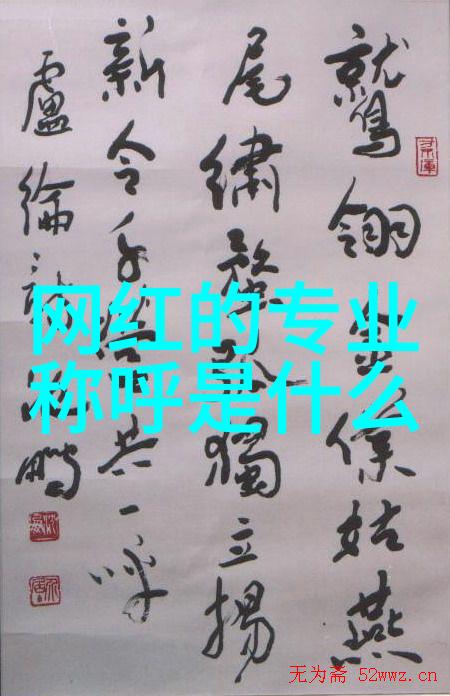 鷲翎金僕姑燕
尾繡蝥弧獨立揚
新令千營共一呼
盧綸詩鵬
网红的专业
称呼是什么
无为斋 52wwz.cn